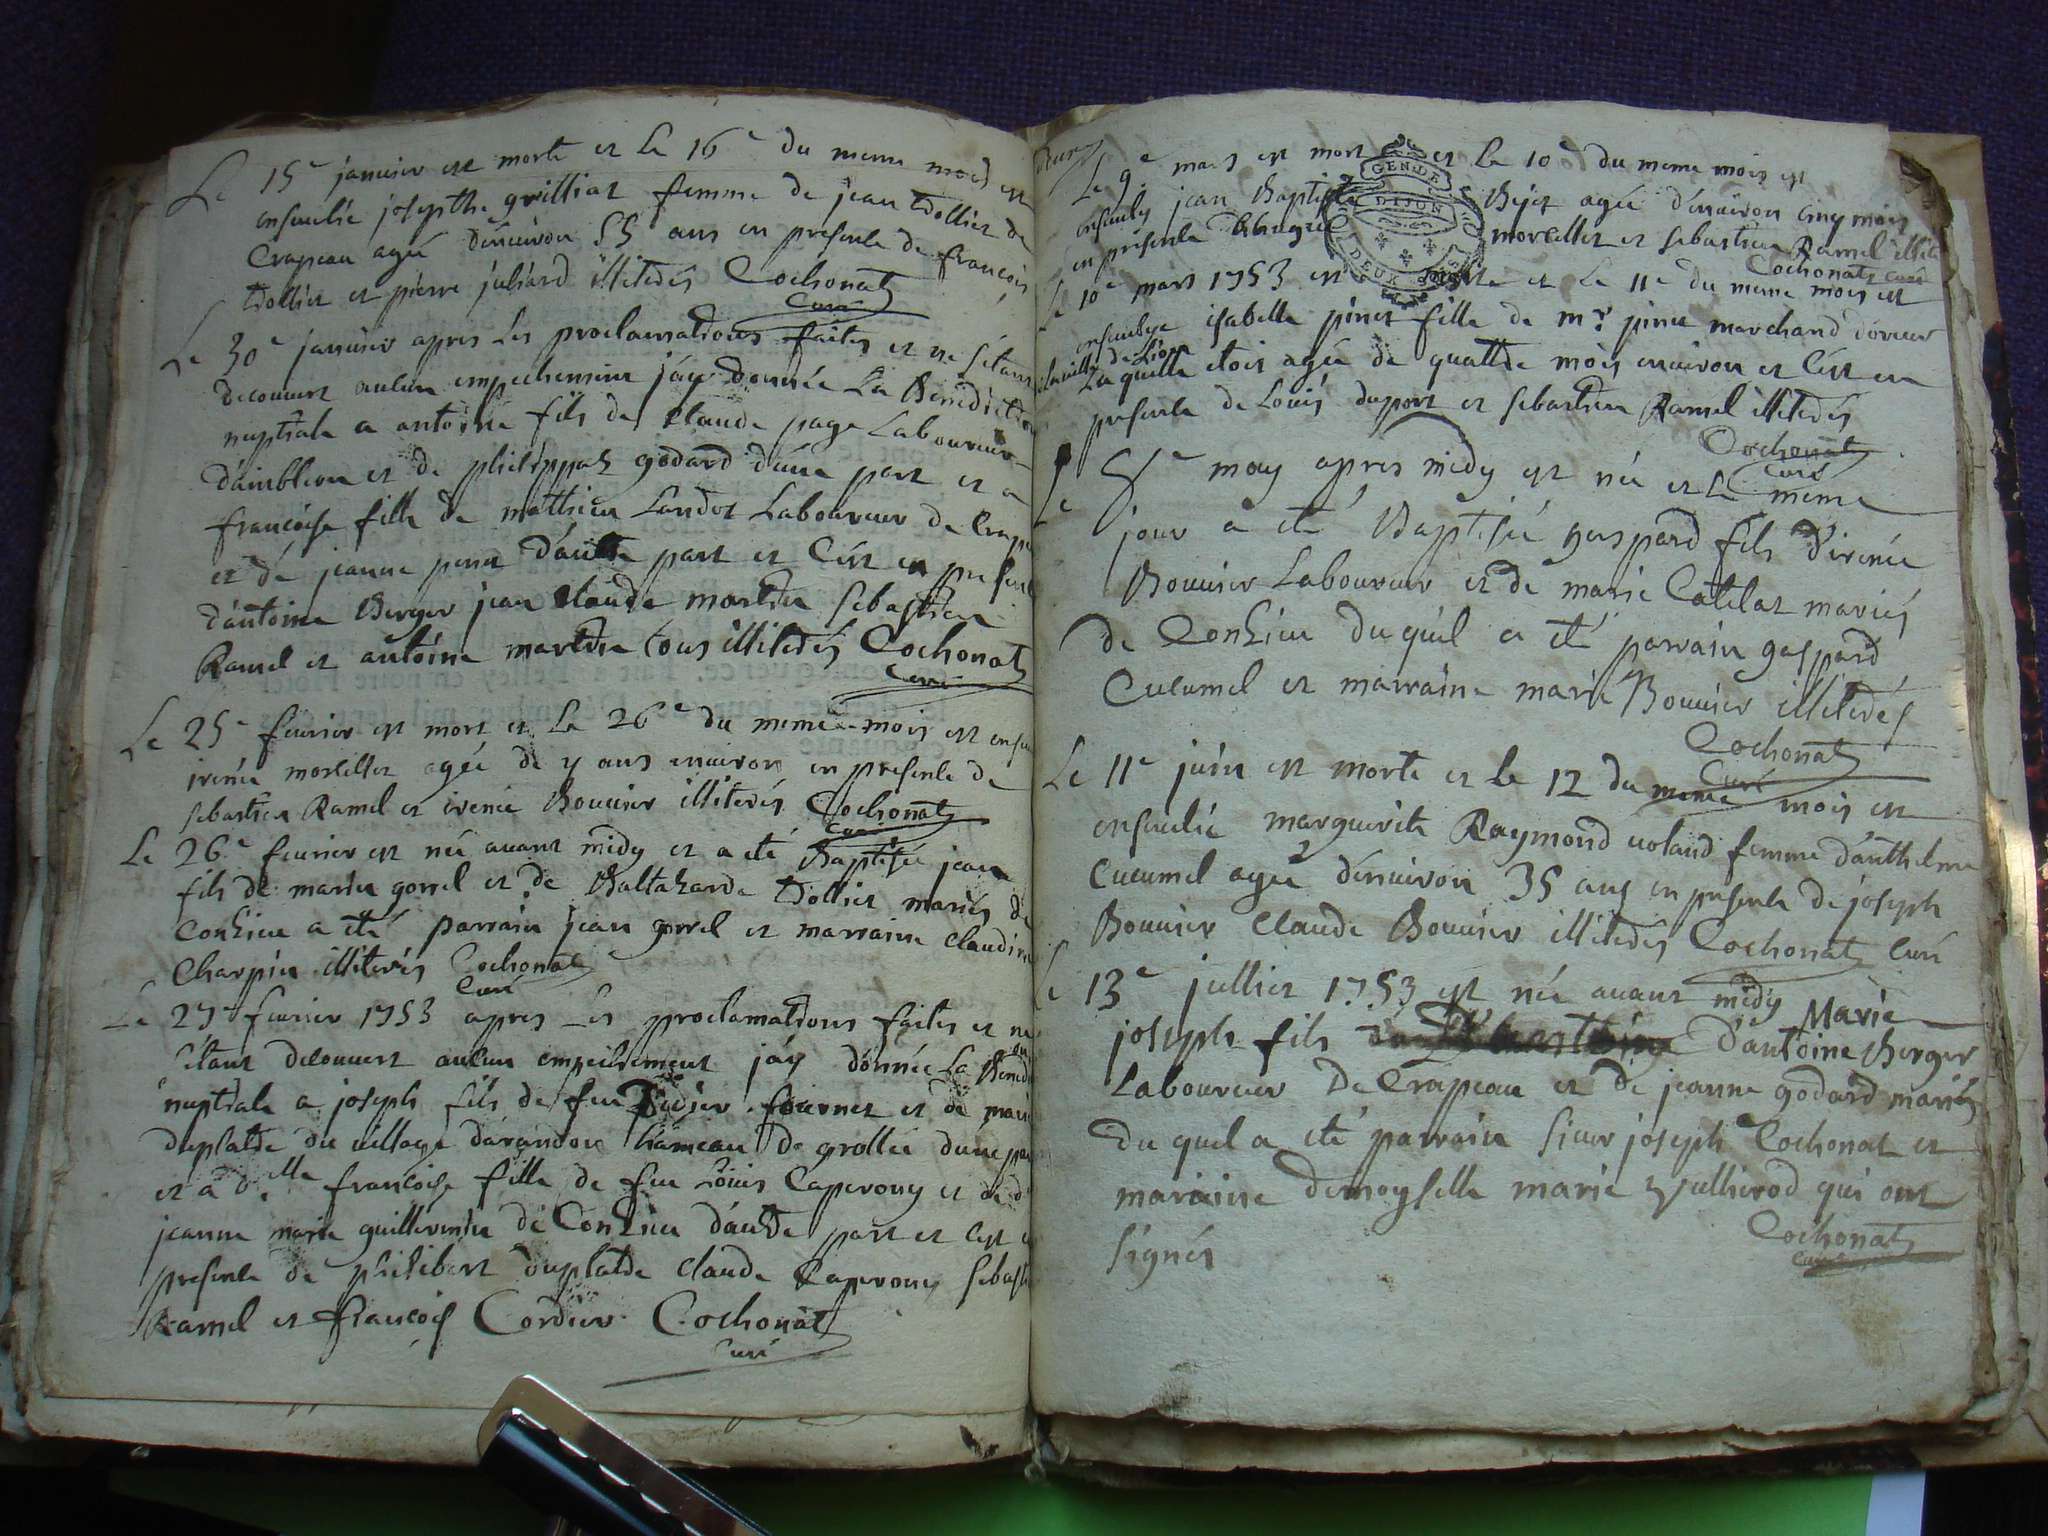 Le 15e janvier est morte et le 16e du meme mois est
ensevelie josepthe grilliat femme de jean Dollier de
Crapeau agée d'environ 55 ans en presence de françois
Dollier et pierre juliard illiterés Cochonat
Curé
Le 30e janvier apres les proclamations faites et ne sétant
decouvert aucun empechement j'ay donnée La Benediction
nuptiale a antoine fils de claude page Laboureur
d'ambleon et de philippaz godard d'une part et a
francoise fille de matthieu Landot Laboureur de Crape
et de jeanne penet d'autre part et c'est en presence
d'antoine Berger jean claude martin sebastien
Ramel et antoine martin tous illiterés Cochonat
Curé
Le 25e fevrier est mort et le 26e du meme mois est ensev
irenée morellet agée de y ans environ en presence de
sebastien Ramel et irenée Bouvier illiterés Cochonat
curé
Le 26e fevrier est née avant midy et a eté Baptisée jean
fils de marin gorrel et de Baltazarde Dollier mariés de
Conzieu a eté parrain jean gorrel et marraine claudine
Charpin illiterés Cochonat
Curé
Le 27e fevrier 1753 apres Les proclamations faites et ne
s'étant decouvert aucun empechement j'ay donnée La Bened on
nuptiale a joseph fils de feu Didier fournet et de marie
duplatre du village d'arandon hameau de grollée d'une par
et a d.elle francoise fille de feu Louis Caperony et de d
jeanne marie guillermin de Conzieu d'autre part et c'est e
presence de philibert duplatre claude Caperony sebasti
Ramel et françois Cordier Cochonat
Curé
Le 9e mars est mort et le 10e du meme mois est
ensevely jean Baptiste Bejet agée d'environ cinq mois
en presence morellet et sebastien Ramel illite
Cochonat curé
Le 10e mars 1753 est morte et le 11e du meme mois est
ensevelye isabelle pinet fille de mr. pinet marchand doreur
de la ville de Lion
Laquelle etoit agée de quattre mois environ et c'est en
presence de Louis duport et sebastien Ramel illiterés
Cochonat
curé
Le may apres midy est née et le meme
jour a eté Baptisée gaspard fils d'irenée
Bouvier Laboureur et de marie Catelat mariés
de Conzieu duquel a eté parrain gaspard
Cucumel et marraine marie Bouvier illiterés
Cochonat
curé
Le 11e juin est morte et le 12 du meme mois est
ensevelie marguerite Raymond voland femme d'anthelme
Cucumel agée d'environ 35 ans en presence de joseph
Bouvier Claude Bouvier illiterés Cochonat Curé
Le 13e jullier 1753 est née avant midy Marie
joseph fils d'antoine Berger
Laboureur De Crapeau et de jeanne godard mariés
du quel a eté parrain sieur joseph Cochonat et
maraine demoyselle marie vullierod qui ont
signés
Cochonat
curé
GEN. DE
DIJON
DEUX SOLS